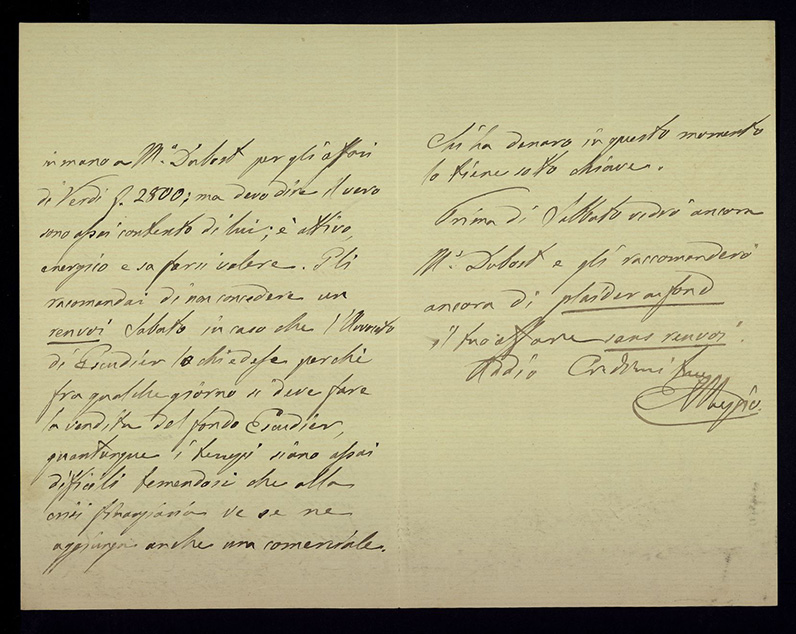 in mano a Mr. Dubost per gli affari
di Verdi f. 2800; ma devo dire il vero
sono assai contento di lui; è attivo,
energico e sa farsi valere. Gli
racomandai di non concedere un
renvoi Sabato in caso che l'Avvocato
di Escudier lo chiedesse perchè
fra qualche giorno si deve fare
la vendita del fondo Escudier,
quantunque i tempi siano assai
difficili temendosi che alla
crisi finanziaria ve se ne
aggiunga anche una comerciale.
Chi ha denaro in questo momento
lo tiene sotto chiave.
Prima di Sabbato vedrò ancora
Mr. Dubost e gli raccomanderò
ancora di plaider au fond
il tuo affare sans renvoi.
Addio Credimi tuo